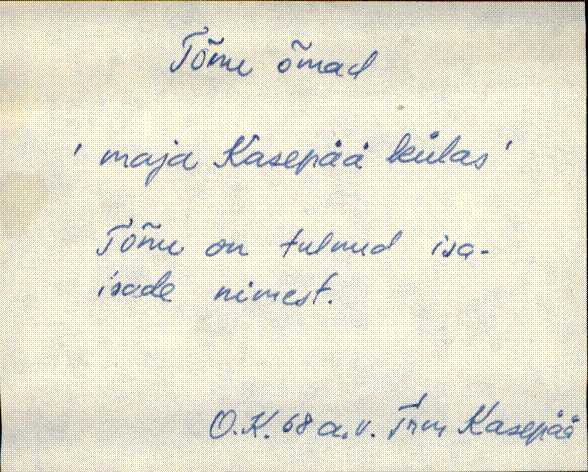 Tõnu õmad
' maja Kasepää külas '
Tõnu on tulnud isa-
isade nimest.
O.K. 68 a.v. Trm Kasepää